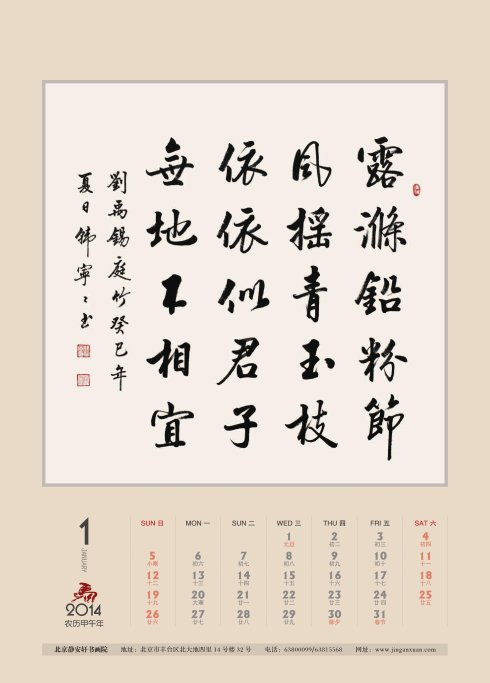 露滌鉛粉節
风摇青玉枝
依依似君子
無地不相宜
劉禹錫庭竹癸巳年
夏日韩寧〻书
1
JANUARY
2014
农历甲午年
SUN 日 MON 一 SUN 二 WED 三 THU 四 FRI 五 SAT 六
1 2 3 4
元旦 初二 初三 初四
5 6 7 8 9 10 11
小寒 初六 初七 初八 初九 初十 十一
12 13 14 15 16 17 18
十二 十三 十四 十五 十六 十七 十八
19 20 21 22 23 24 25
十九 大寒 廿一 廿二 廿三 廿四 廿五
26 27 28 29 30 31
廿六 廿七 廿八 廿九 除夕 春节
北京静安轩书画院 地址：北京市丰台区北大地四里14号楼32号 电话：63800099/63815568 网址：www.jinganxuan.com